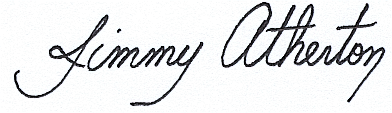 Jimmy Atherton